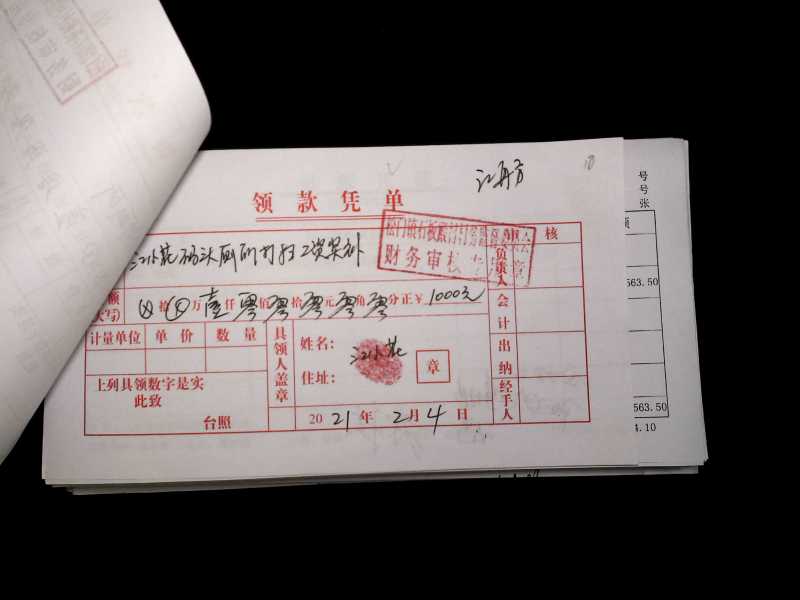 领款凭单
江小花码头厕所打扫工资奖补
财务审核
审核
负责人
⊗拾⊗万壹仟零佰零拾零元零角零分正¥1000元
会计
计量单位 单价 数量
具领人盖章
姓名：江小花
住址：
章
出纳
上列具领数字是实
此致
台照
2021年2月4日
经手人
号
号
张
563.50
563.50
4.10